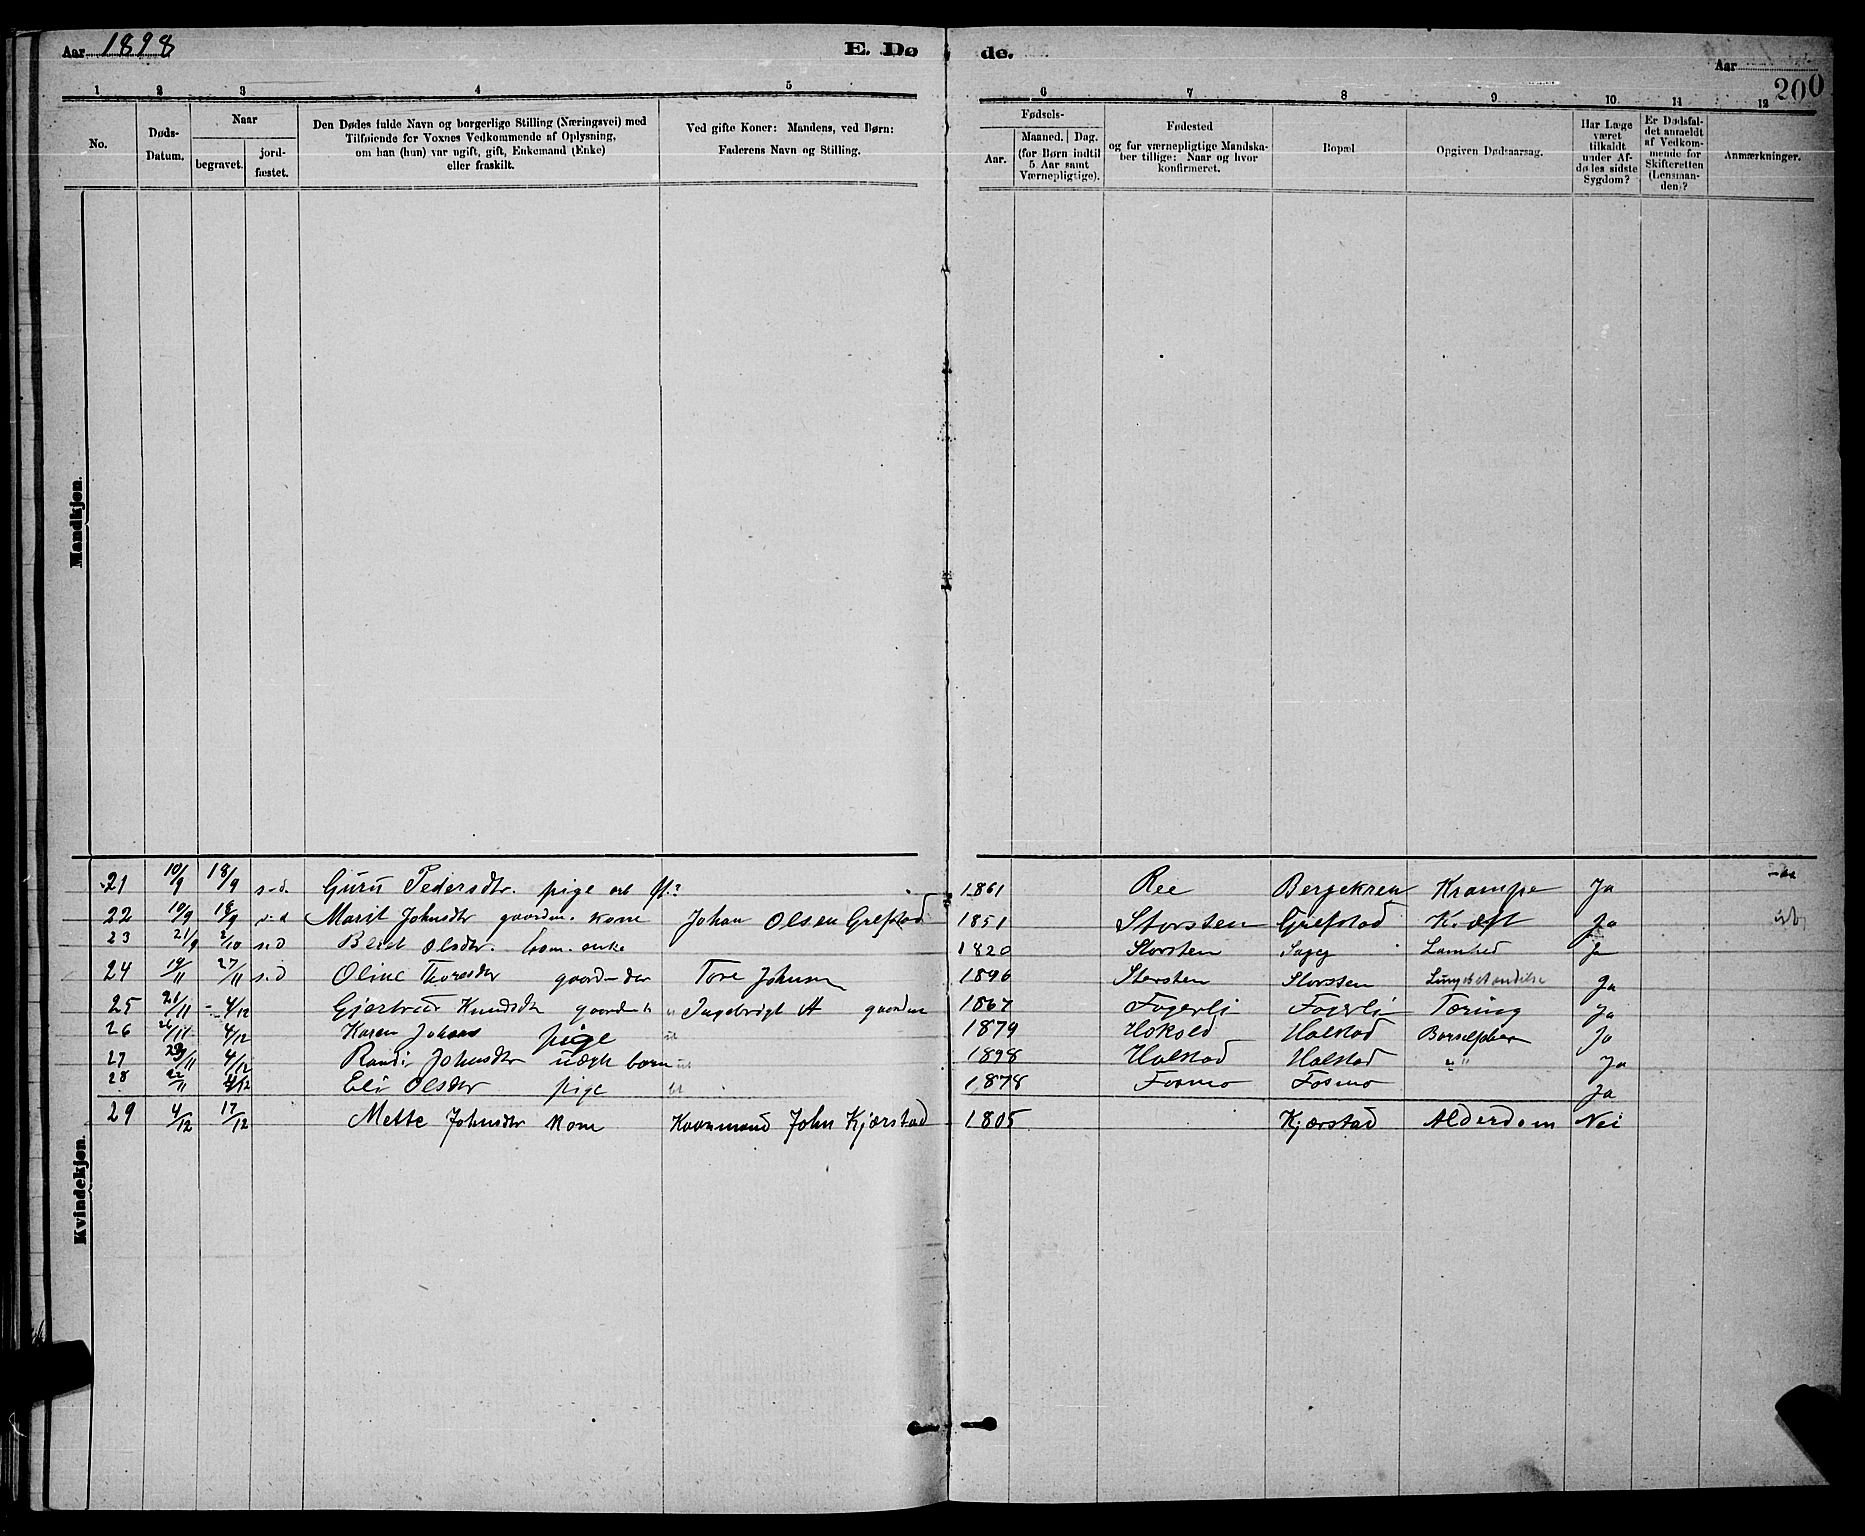 Aar 1898
E. Dø
de.
Aar
200
1 2 3 4 5 6 7 8 9 10 11 12
No.
Døds-
Datum.
Naar
begravet.
jord-
fæstet.
Den Dødes fulde Navn og borgerlige Stilling (Næringsvei) med
Tilføiende for Voxnes Vedkommende af Oplysning,
om han (hun) var ugift, gift, Enkemand (Enke)
eller fraskilt.
Ved gifte Koner: Mandens, ved Børn:
Faderens Navn og Stilling.
Fødsels-
Aar.
Maaned. Dag.
(for Børn indtil
5 Aar samt
Værnepligtige).
Fødested
og for værnepligtige Mandska-
ber tillige: Naar og hvor
konfirmeret.
Bopæl
Opgiven Dødsaarsag.
Har Læge
været
tilkaldt
under Af-
dødes sidste
Sygdom?
Er Dødsfal-
det anmeldt
af Vedkom-
mende for
Skifteretten
(Lensman-
den)?
Anmærkninger.
Mandkjøn.
Kvindekjøn.
21 10/9 18/9 s.d. Guru Pedersdtr. pige 1861 Ree Bergekren Krampe Ja
22 10/9 18/9 s.d Marit Johnsdtr gaardm. kone Johan Olsen Grefstad 1851 Storsten Grefstad Kræft Ja
23 21/9 2/10 s.d Olsdtr. enke 1820 Storsten Lamhed Ja
24 19/11 27/11 s.d Oline Thoresdtr Tore Johnsen 1896 Storsten Storsten Ja
25 21/11 4/12 Gjertrud Knudsdtr Ingebrigt 1867 Fogerli Fogerli Tæring Ja
26 4/12 Karen Johans pige 1879 Halstad Ja
27 4/12 Randi Johnsdtr uægte barn 1898 Halstad Halstad " " Ja
28 22/11 4/12 Eli Olsdtr pige 1878 Fosmo Fosmo Ja
29 4/12 17/12 Mette Johnsdtr Kone John Kjørstad 1805 Kjørstad Alderdom Nei